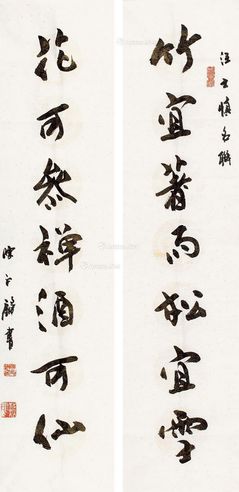 汪士慎句联
竹宜著雨松宜雪
花可参禅酒可仙